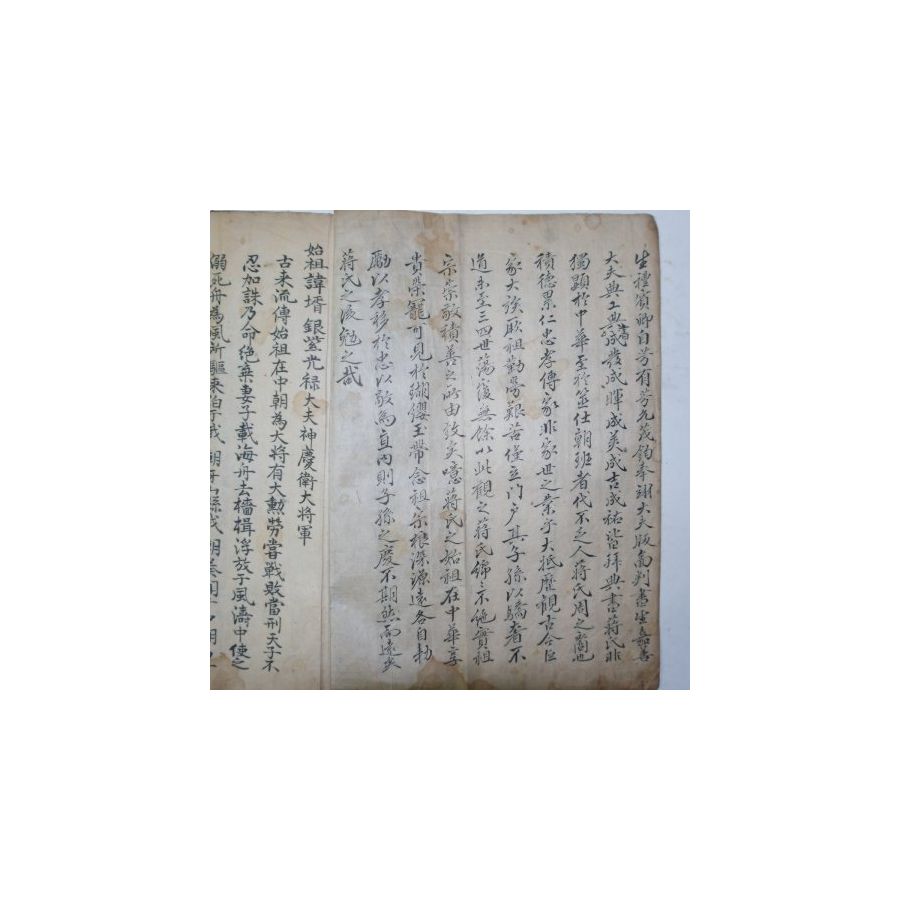 生禮賓卿自芳有菁允茂鈞奉翊大夫版啚判書生嘉善
大夫典工典書成發成暉成美成吉成祐皆拜典書蔣氏非
獨顯於中華至於筮仕朝班者代不乏人蔣氏周之裔也
積德累仁忠孝傳家非家世之業乎大抵歷觀古今巨
家大族厥祖勤勞艱苦僅立门户其子孫以驕奢不
道未至三四世蕩覆無餘以此觀之蔣氏綿々不絶實祖
宗崇敬積善之所由致矣噫蔣氏之始祖在中華享
貴榮寵可見於瑚纓玉帶念祖宗根深源遠各自劫
勵以孝移於忠以敬爲直内則子孫之慶不期然而遠矣
蔣氏之後勉之哉
始祖諱壻銀紫光禄大夫神慶衛大将軍
古来流傳始祖在中朝為大将有大勲勞嘗戰敗當刑天子不
忍加誅乃命絶棄妻子載海舟去檣楫浮放于風濤中使之
溺死舟為風所驅来泊于我